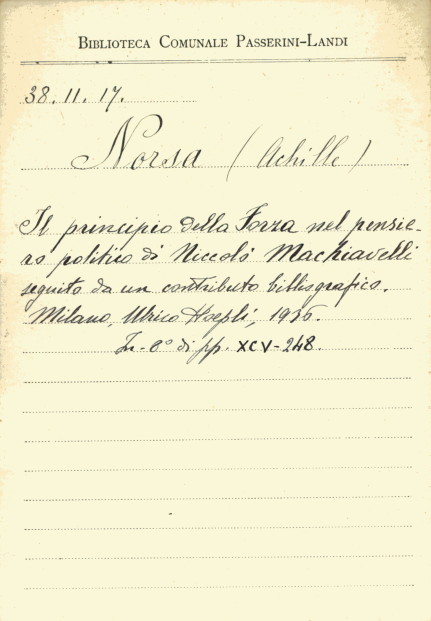 BIBLIOTECA COMUNALE PASSERINI-LANDI
38. 11. 17.
Norsa (Achille)
Il principio della Forza nel pensie-
ro politico di Niccolò Machiavelli
seguito da un contributo bibliografico.
Milano, Ulrico Hoepli, 1936.
In-8° di pp. XCV-248.